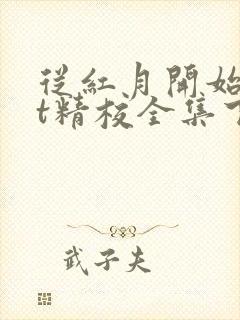 從紅月開始
t精校全集下
武子夫